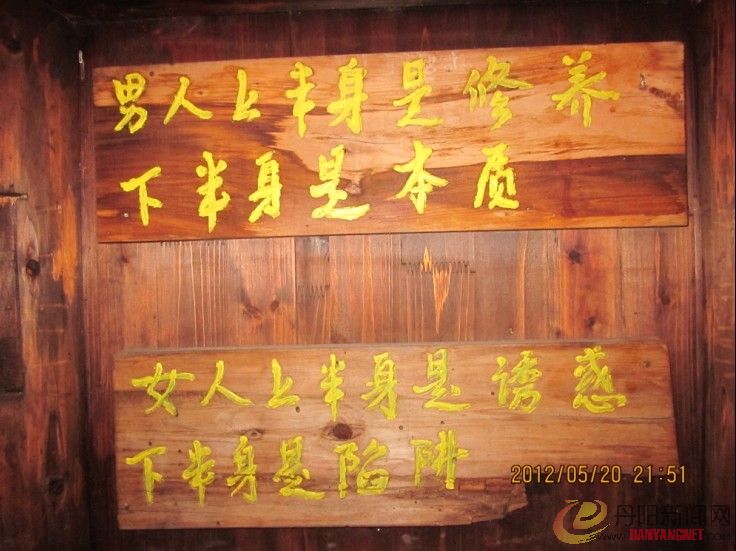 男人上半身是修养
下半身是本质
女人上半身是诱惑
下半身是陷阱
2012/05/20 21:51
丹阳新闻网
DANYANG.NET